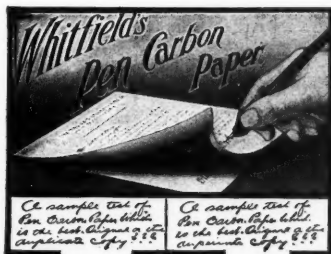 Whitfield's
Pen Carbon
Paper
A sample test of
Pen Carbon Paper Which
is the best. Original or the
duplicate copy ???
A sample test of
Pen Carbon Paper Which
is the best. Original or the
duplicate copy ???